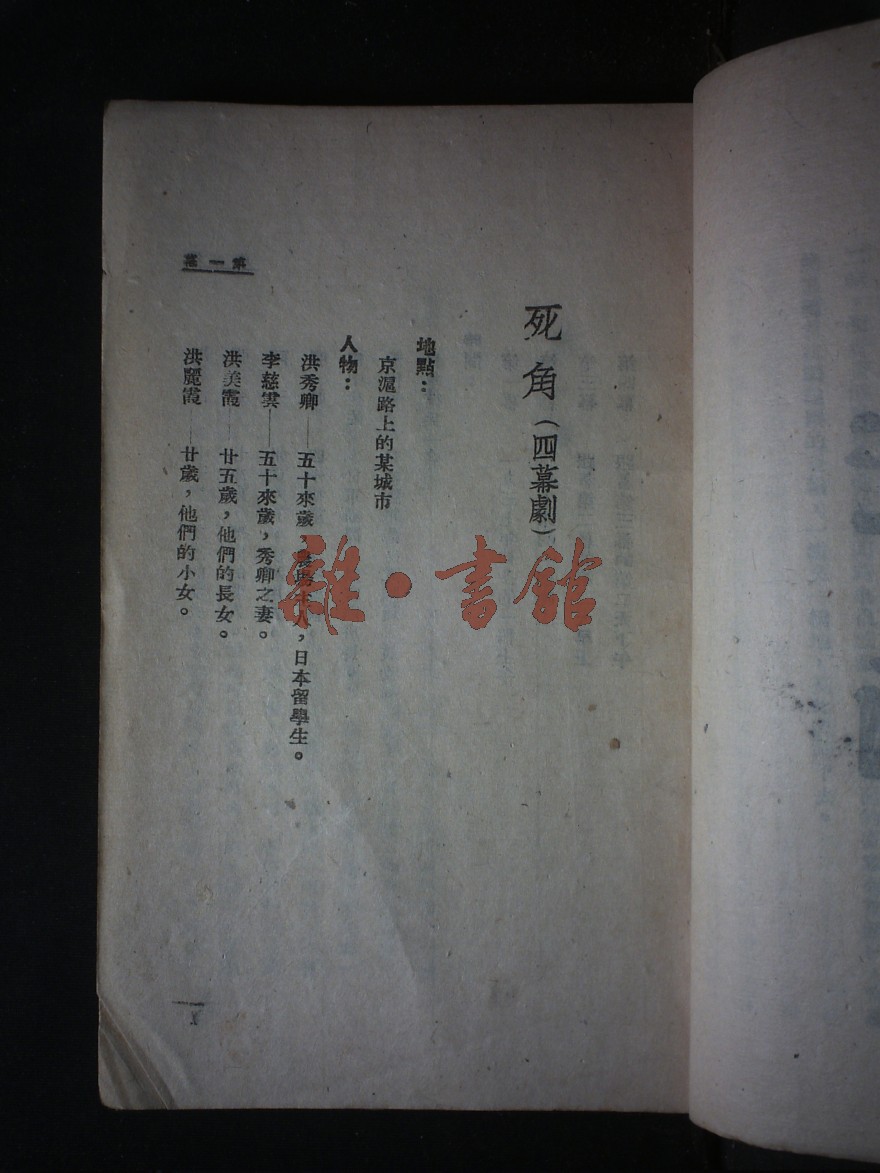 死角（四幕劇）
地點：
京滬路上的某城市
人物：
洪秀卿——五十來歲，人，日本留學生。
李慈雲——五十來歲，秀卿之妻。
洪美霞——廿五歲，他們的長女。
洪麗霞——廿歲，他們的小女。
第一幕
1
雜·書館